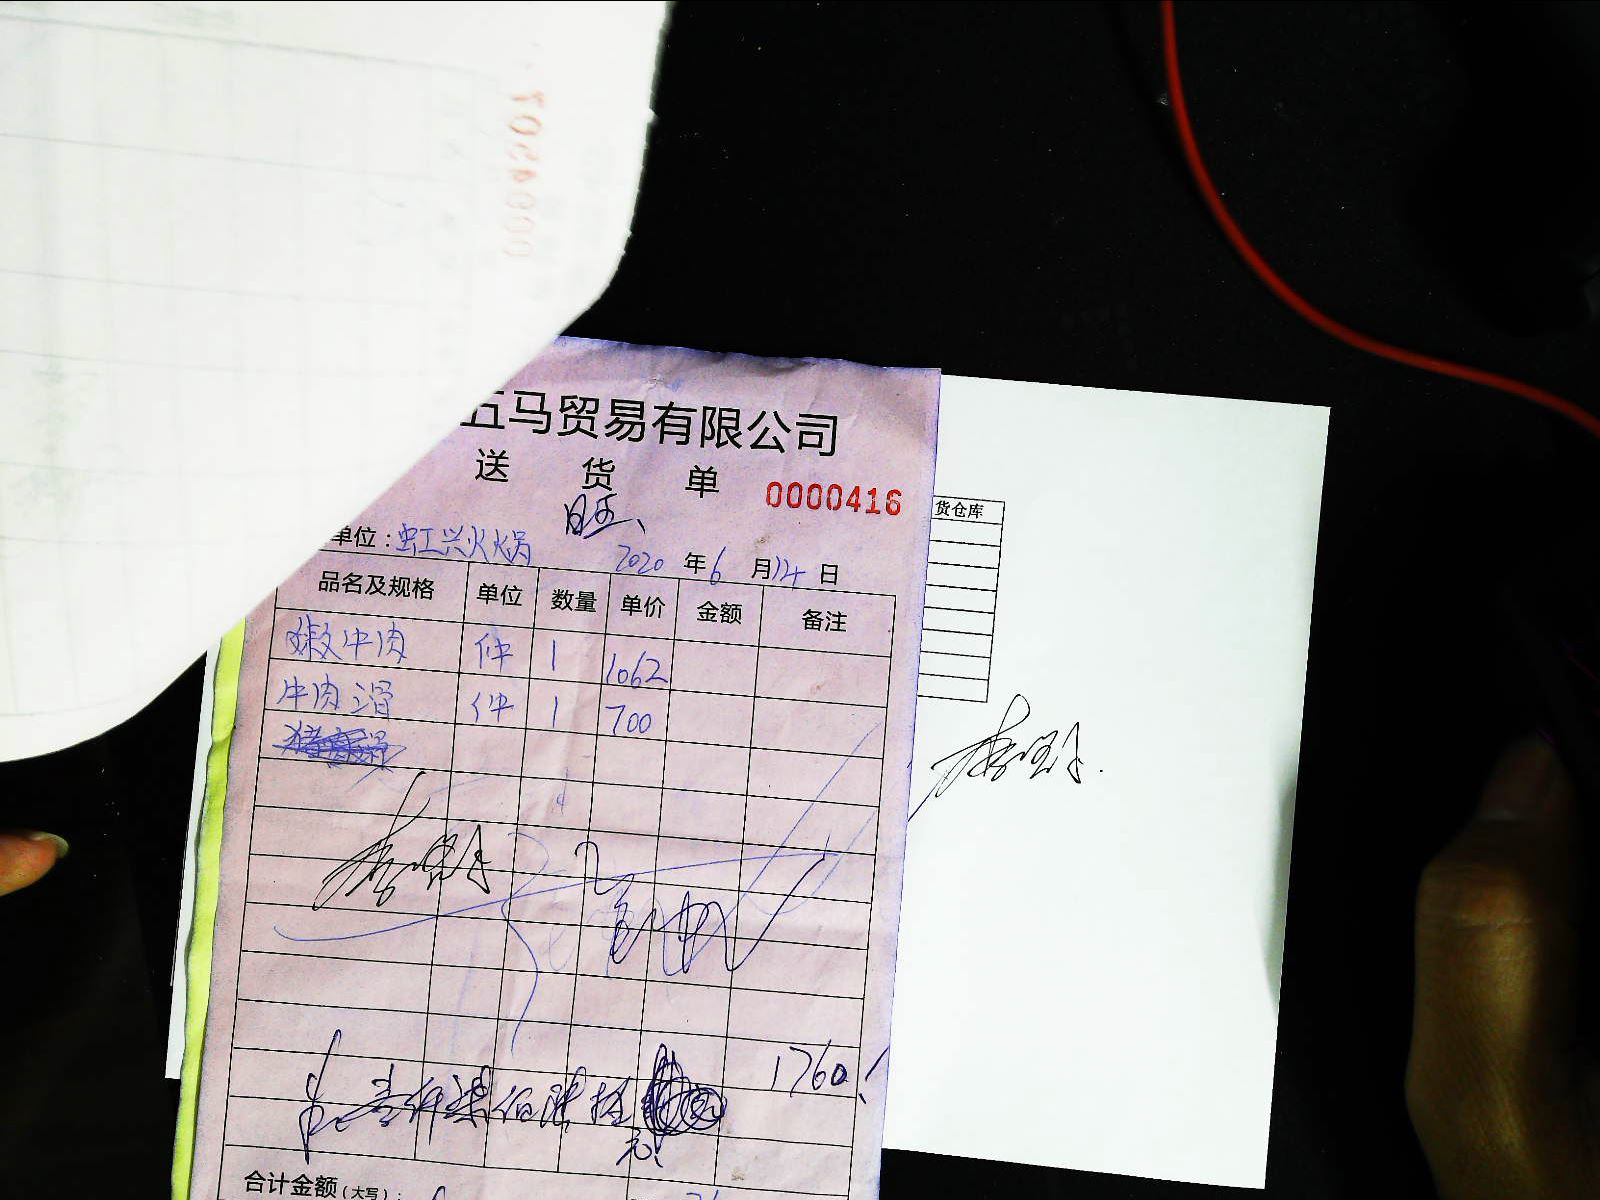 五马贸易有限公司
送 货 单
0000416
货仓库
旺
单位:虹兴火火锅 2020 年 6 月 14 日
品名及规格 单位 数量 单价 金额 备注
嫩牛肉 件 1 1062
牛肉滑 件 1 700
1760
壹仟柒佰陆拾
元
合计金额(大写):